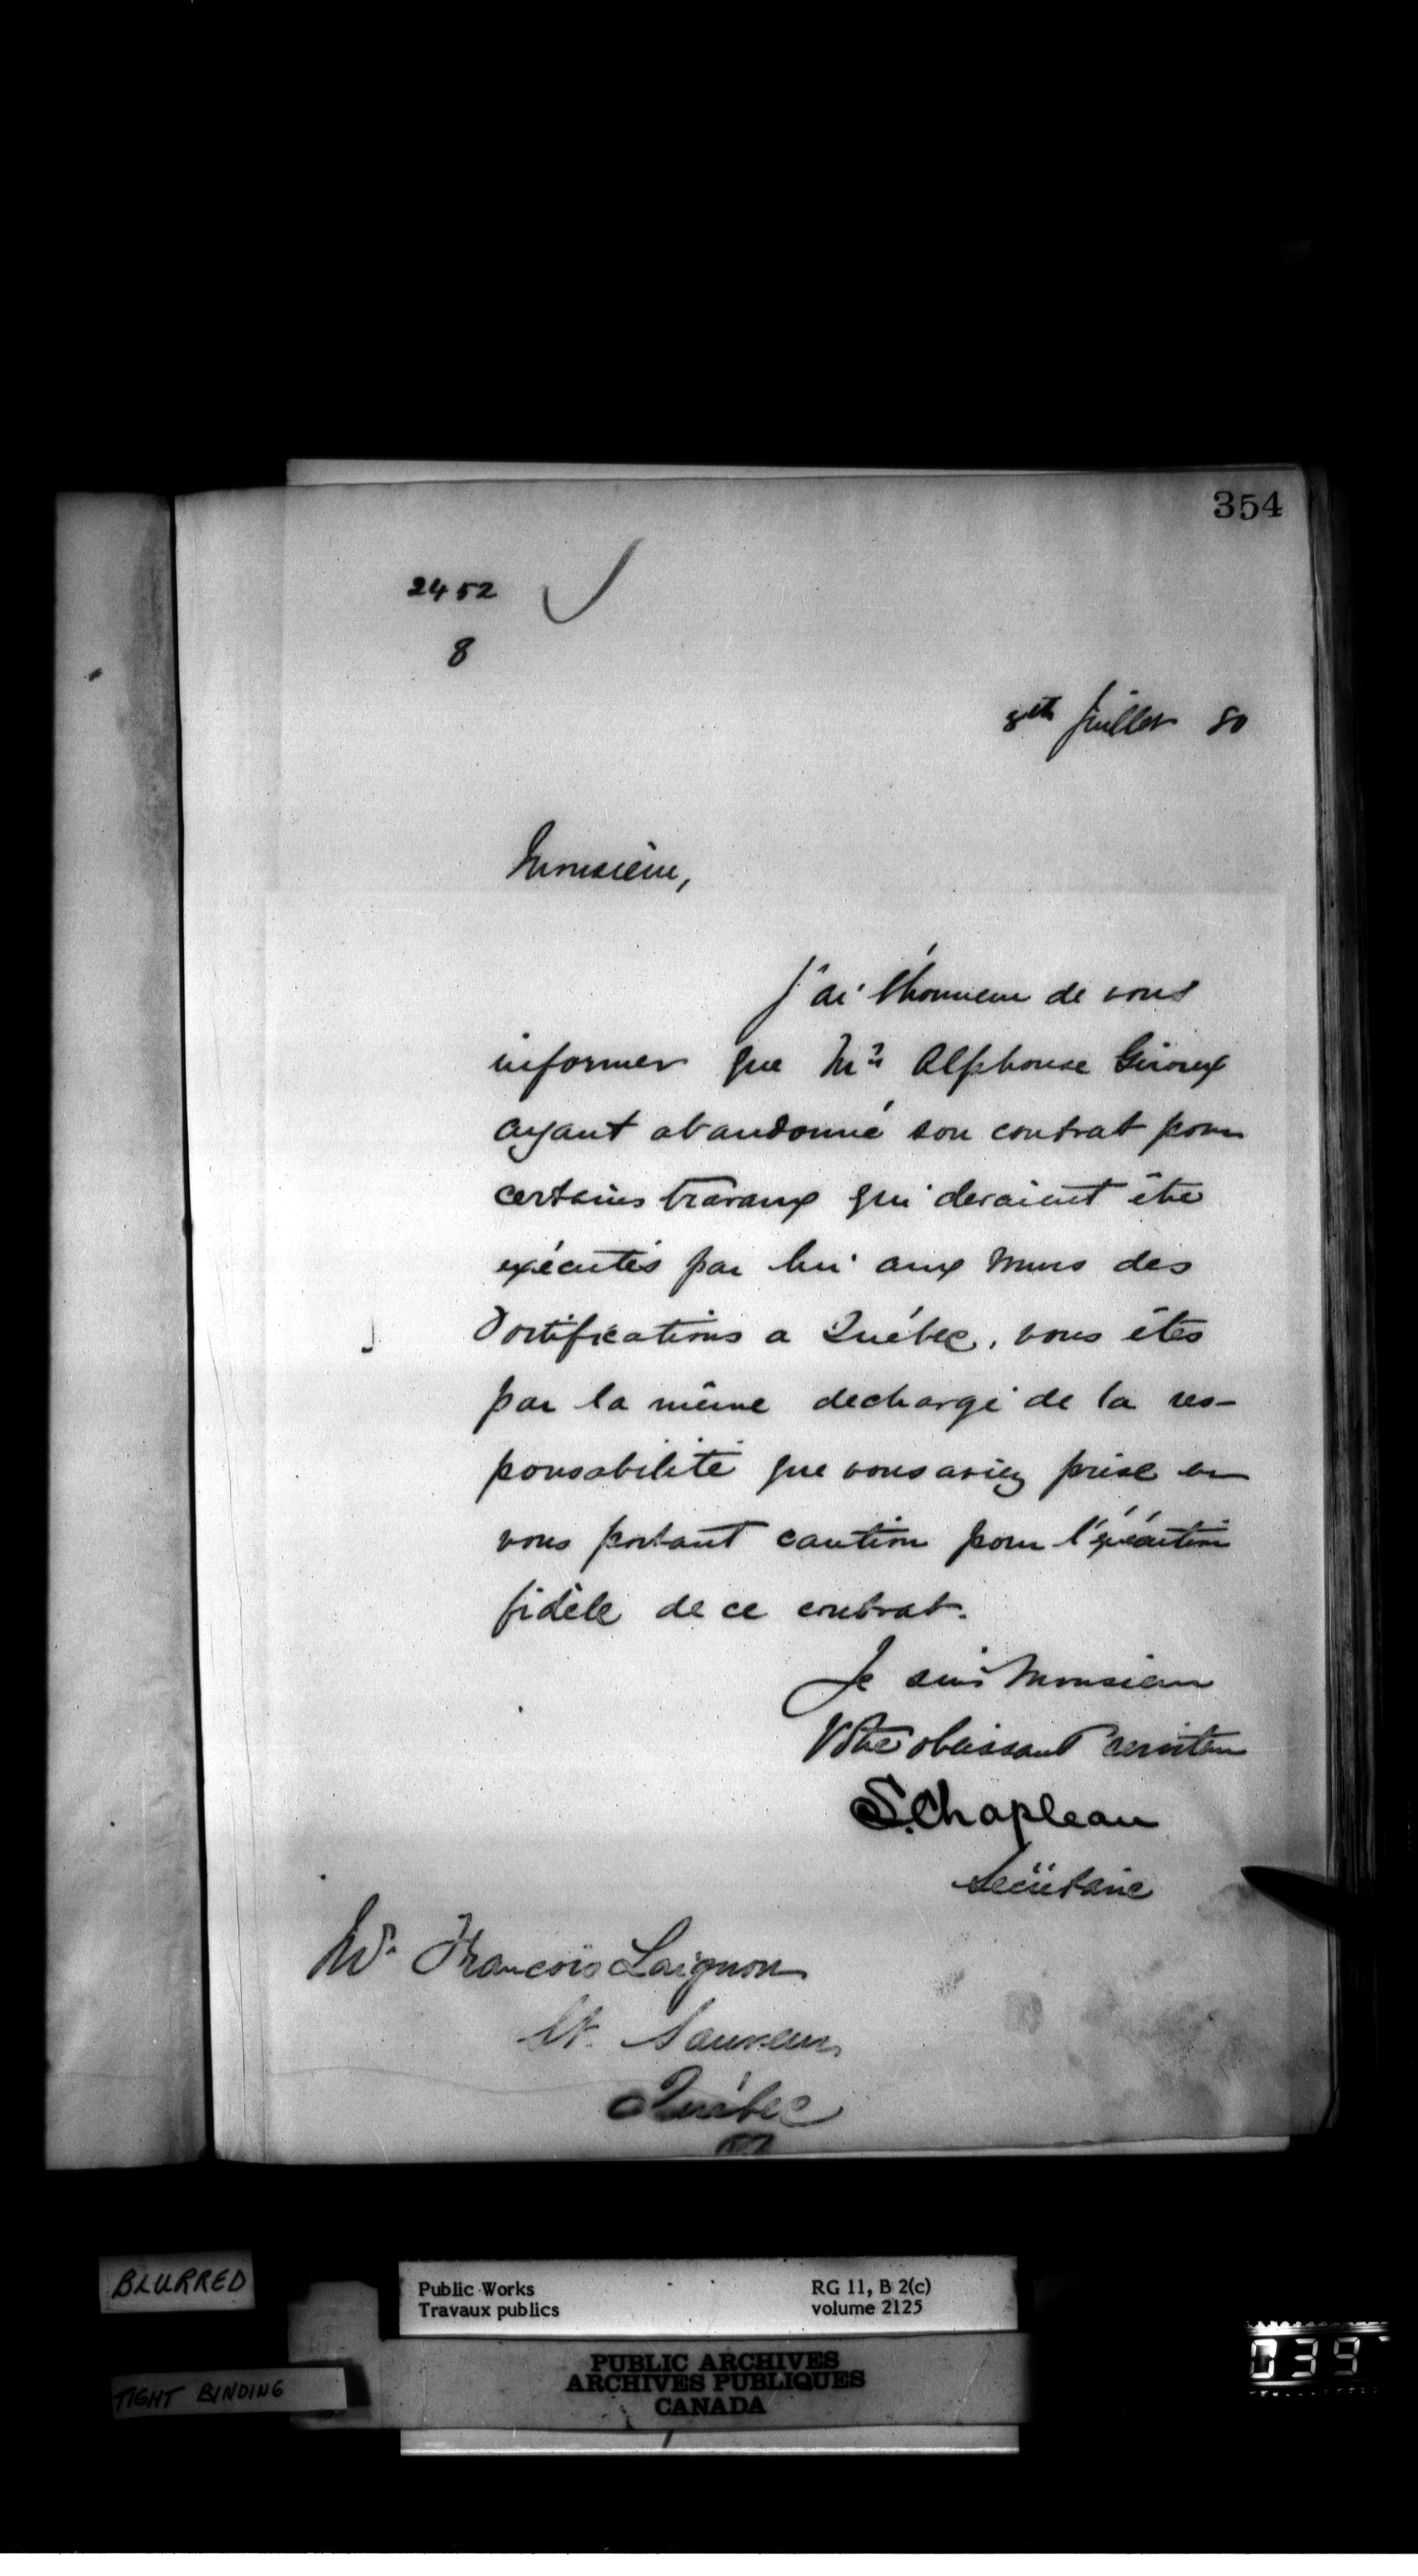 354
2452
8
8th Juillet 80
Monsieur,
J'ai l'honneur de vous
informer que Mr Alphonse Giroux
ayant abandonné son contrat pour
certains travaux qui devaient être
exécutés par lui aux murs des
Fortifications a Québec, vous êtes
par la même dechargé de la res-
ponsabilité que vous aviez prise en
vous portant caution pour l'éxécution
fidèle de ce contrat.
Je suis Monsieur
Votre obeissant serviteur
S. Chapleau
Secrétaire
Mr. Francois Laignon
St. Sauveur
Québec
BLURRED
TIGHT BINDING
Public Works
Travaux publics
RG 11, B 2(c)
volume 2125
PUBLIC ARCHIVES
ARCHIVES PUBLIQUES
CANADA
039